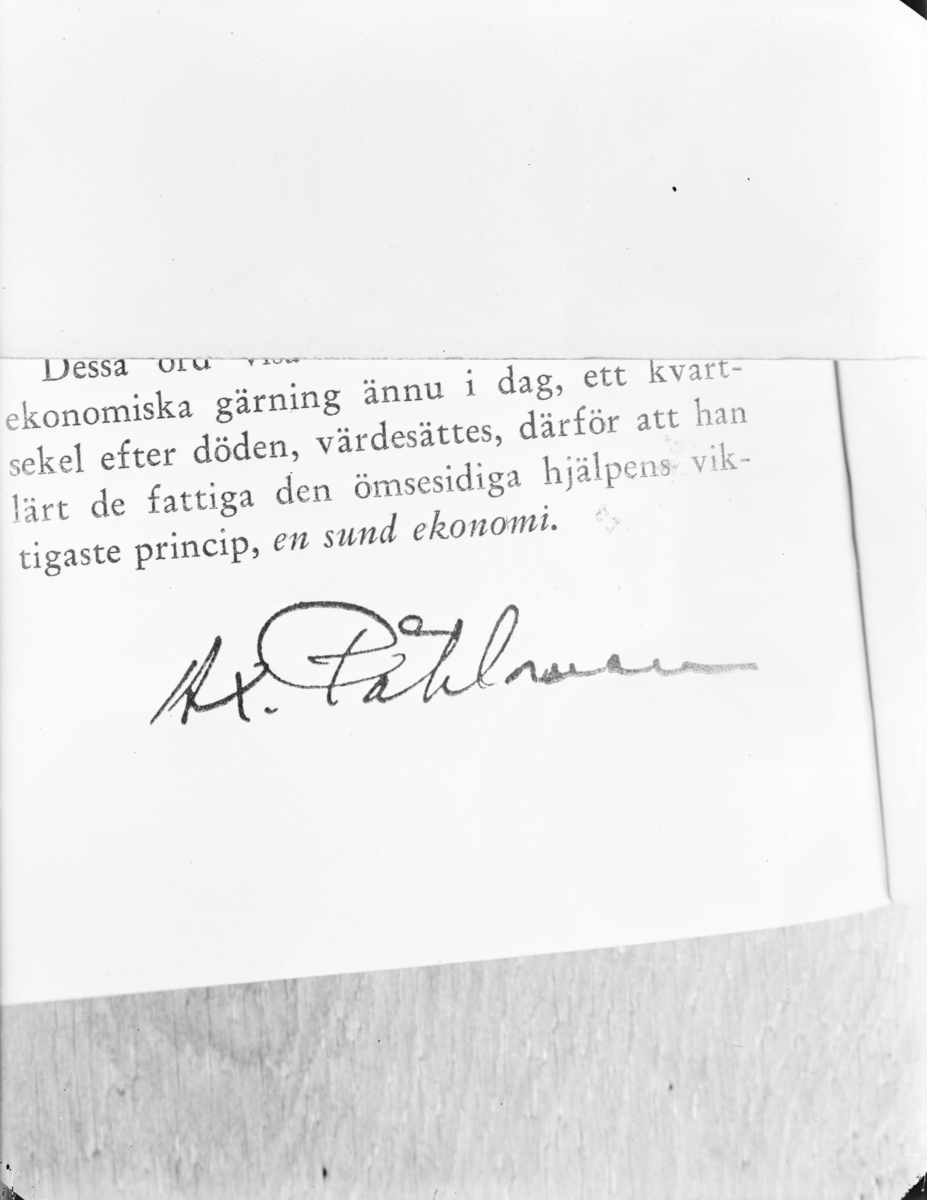 Dessa ord visa
ekonomiska gärning ännu i dag, ett kvart-
sekel efter döden, värdesättes, därför att han
lärt de fattiga den ömsesidiga hjälpens vik-
tigaste princip, en sund ekonomi.
Ax. Påhlman